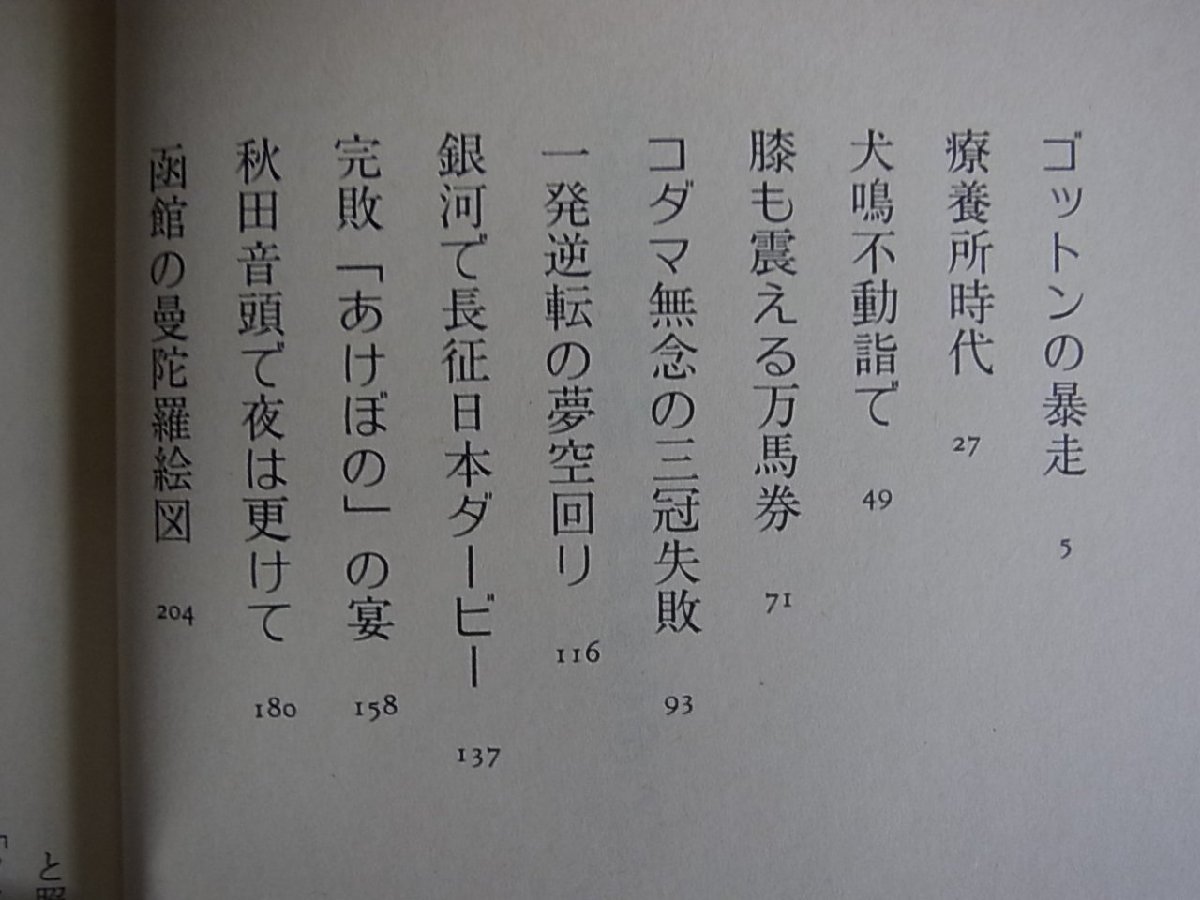 ゴットンの暴走 5
療養所時代 27
犬鳴不動詣で 49
膝も震える万馬券 71
コダマ無念の三冠失敗 93
一発逆転の夢空回り 116
銀河で長征日本ダービー 137
完敗「あけぼの」の宴 158
秋田音頭で夜は更けて 180
函館の曼陀羅絵図 204